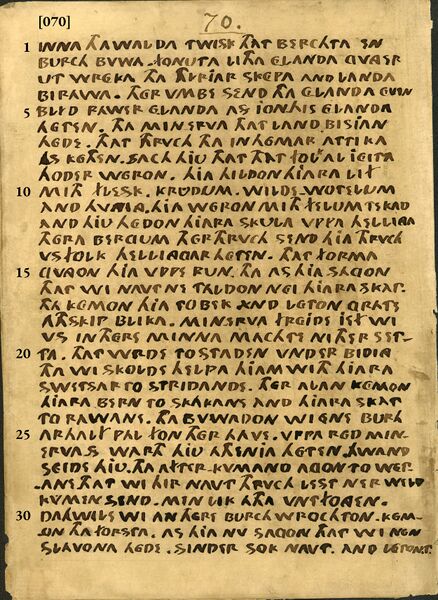 [070]
70.
1 INNA THA WALDA TWISK THAT BERCHTA EN
BURCH BUWA. FONUTA LITHA ELANDA QVAER
UT WREKA THA THRIAR SKEPA AND LANDA
BIRAWA. THER VMBE SEND THA ELANDA EVIN
5 BLID RAWER ELANDA AS IONHIS ELANDA
HETEN. THA MINERVA THAT LAND BISIAN
HEDE. THAT THRVCH THA INHEMAR ATTIKA
IS HETEN. SACH HIU THAT THAT FOLK AL IEITA
HODER WERON. HIA HILDON HIARA LIF
10 MITH FLESK. KRUDUM. WILDE. WOTELUM
AND HVNING. HIA WERON MITH FELUM TEKAD
AND HIU HEDON HIARA SKULA VPPA HELLINGA
THERA BERGUM. THER THRVCH SEND HIA THRVCH
VS FOLK HELLINGGAR HETEN. THAT FORMA
15 GVNGON HIA VPPE RUN. THA AS HIA SAGON
THAT WI NAVT NE TALDON NEI HIARA SKAT.
THA KEMON HIA TO BEK. AND LETON GRATE
ATHSKIP BLIKA. MINERVA FREIDE IEF WI
VS IN THERE MINNA MACHTE NITHER SET-
20 TA. THAT WRDE TO STADEN VNDER BIDING
THA WI SKOLDE HELPA HIAM WITH HIARA
SWETSAR TO STRIDANDE. THER ALAN KEMON
HIARA BERN TO SKAKANA AND HIARA SKAT
TO RAWANE. THA BUWADON WI ENE BURCH
25 ARHALF PAL FON THER HAVE. VPPA RED MIN-
ERVAS WARTH HIU ATHENIA HETEN. HWAND
SEIDE HIU. THA AFTER-KUMAND AGON TO WET-
ANE THAT WI HIR NAVT THRVCH LEST NER WELD
KVMEN SEND. MEN LIK ATHA VNTFONGEN.
30 DAHWILE WI AN THERE BURCH WROCHTON. KEM-
ON THA FORSTA. AS HIA NV SAGON THAT WI NEN
SLAVONA HEDE. SINDER SOK NAVT. AND LETON-T.